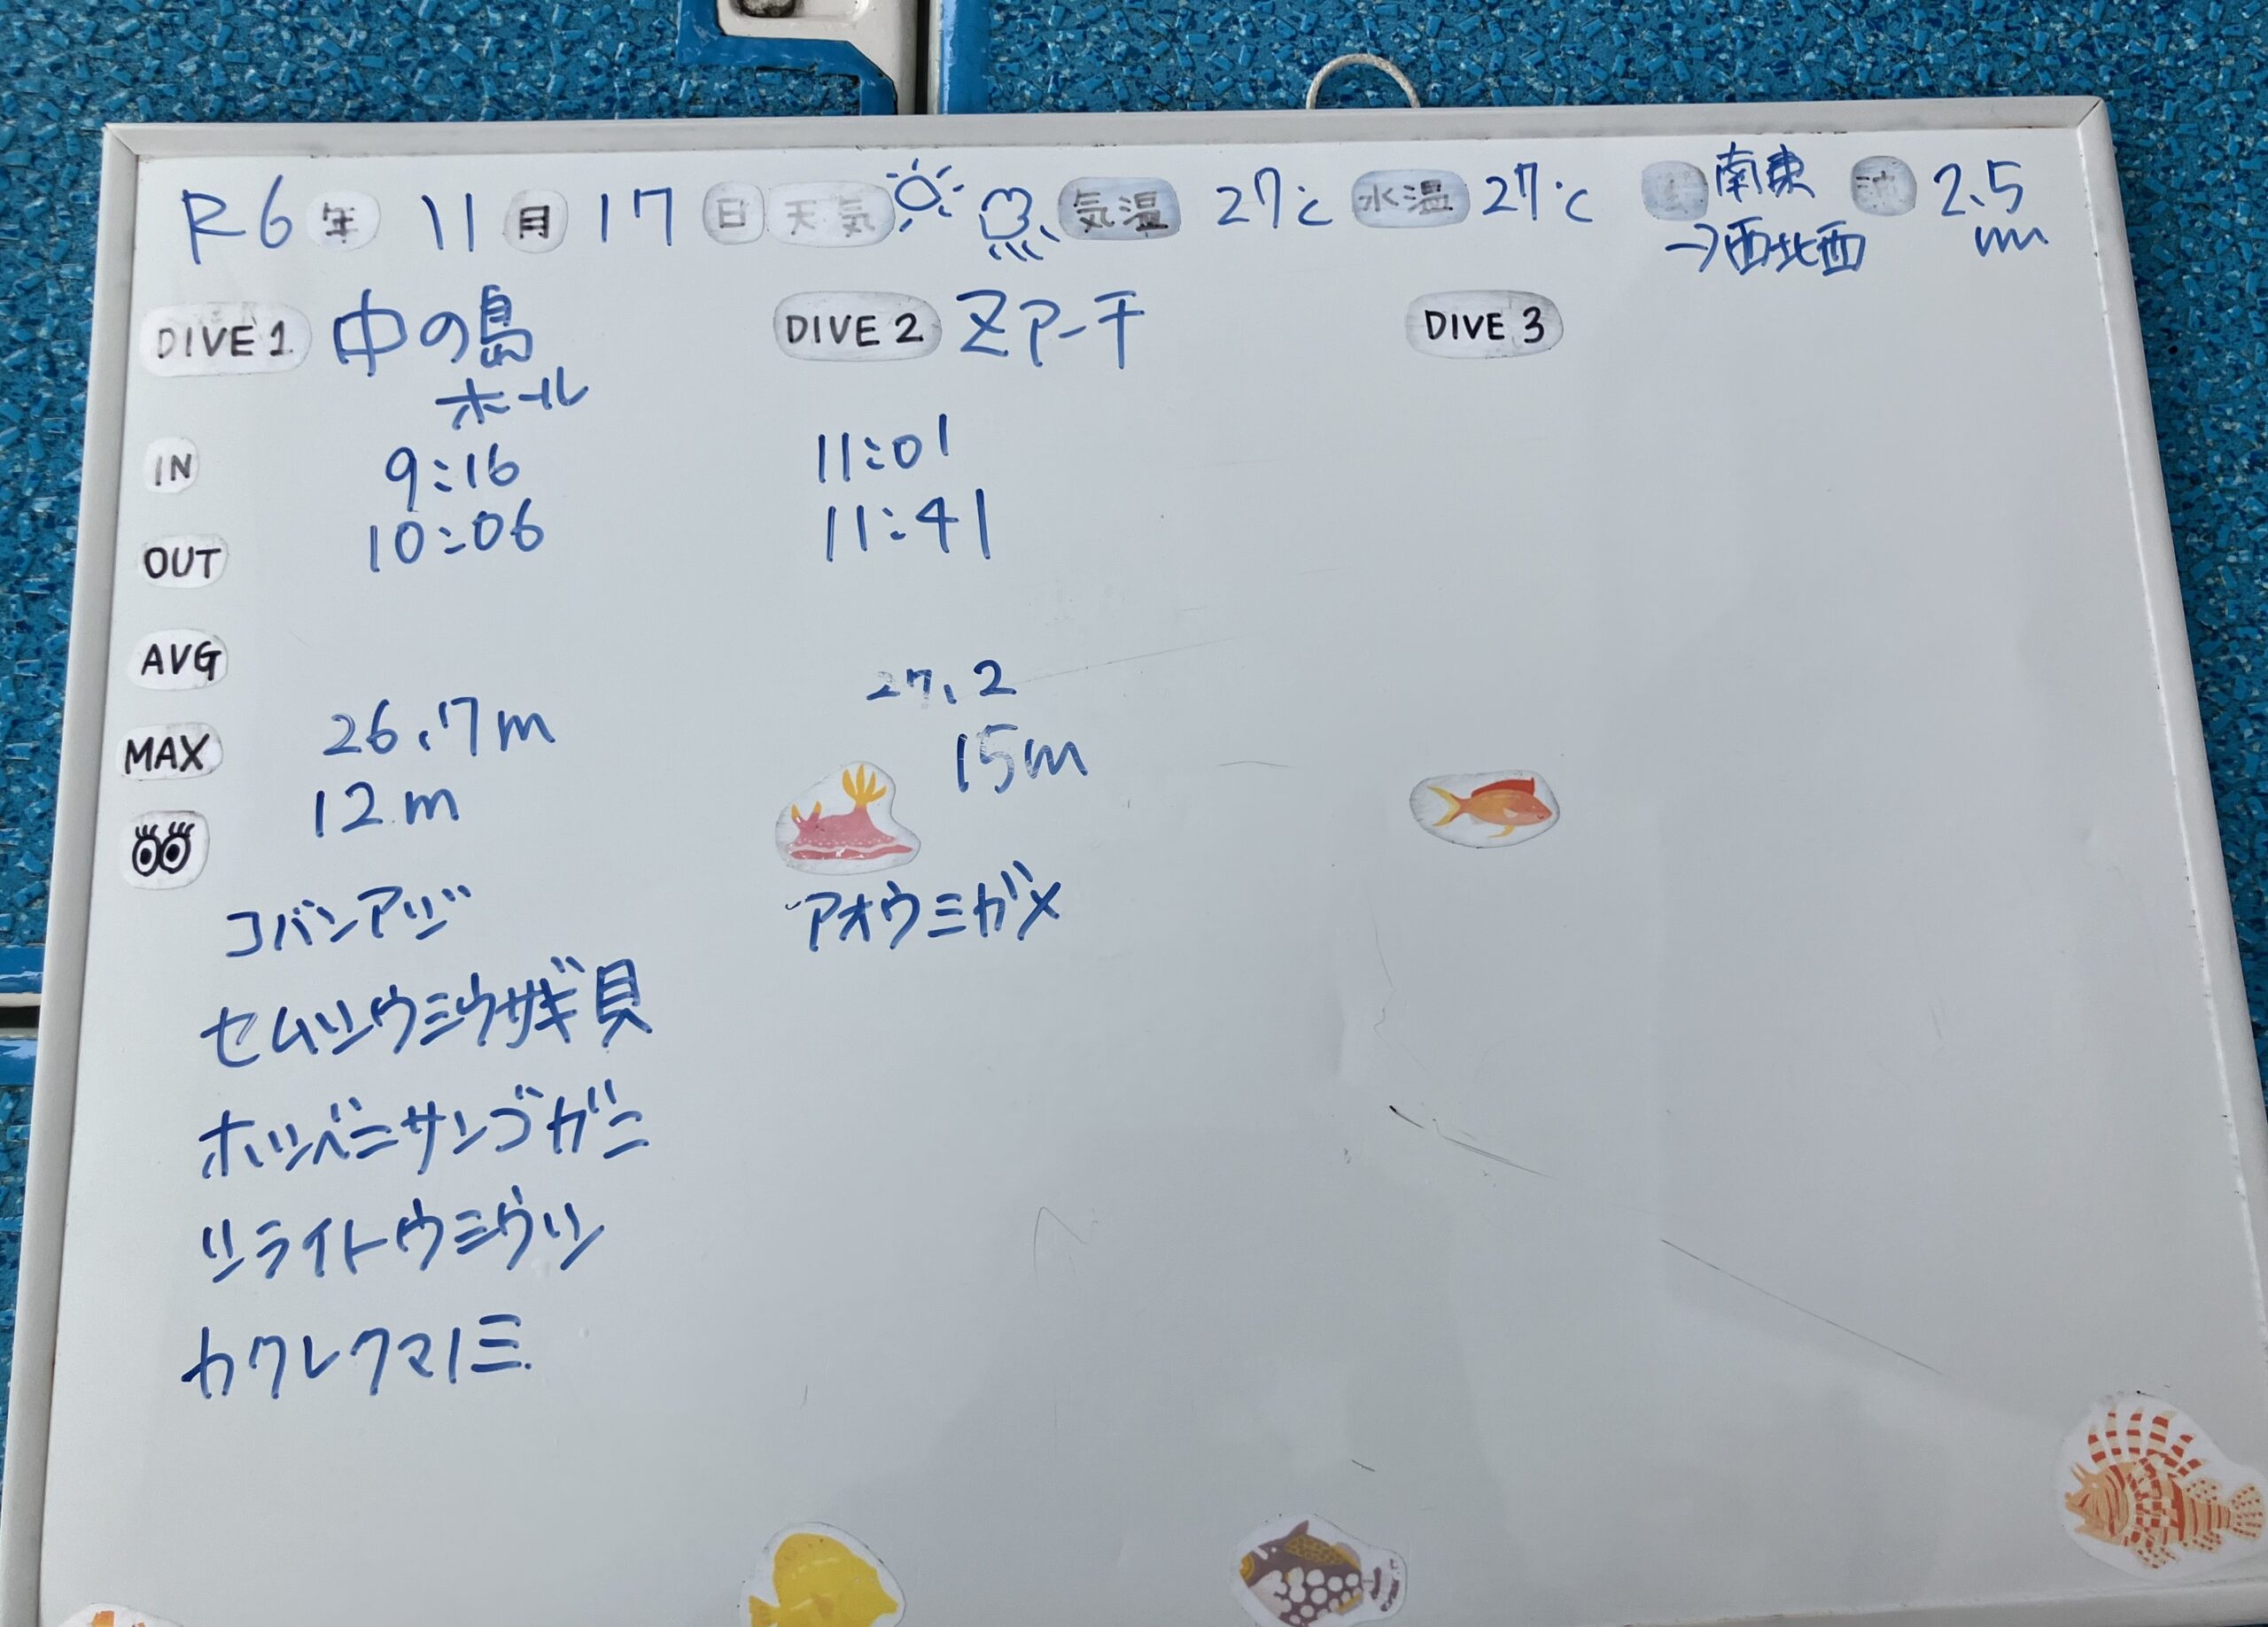 R6年 11月 17日 天気 気温 27℃ 水温 27℃ 南東 波 2.5
→西北西 m
DIVE 1 中の島
ホール
DIVE 2 Zアーチ
DIVE 3
IN 9:16 11:01
OUT 10:06 11:41
AVG
MAX 26.7m 27.2
12m 15m
コバンアジ
アオウミガメ
セムシウミウサギ貝
ホシベニサンゴガニ
シライトウミウシ
カクレクマノミ